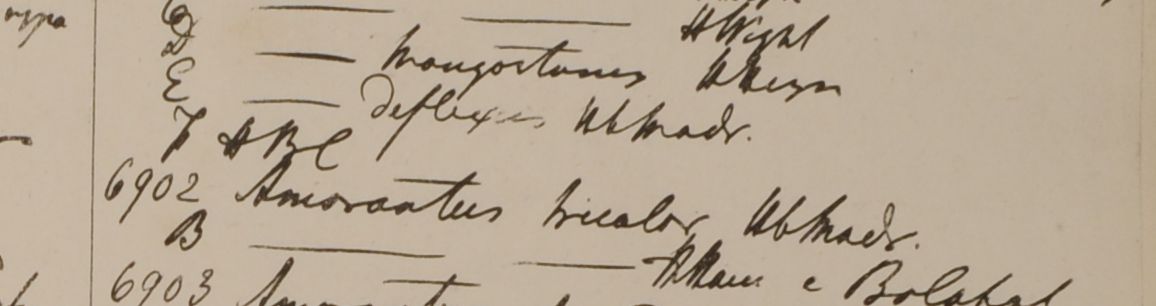 D ——— ——— H Wight
E ——— mangostanus H Heyn
——— deflexus Hb Madr.
F H B C
6902 Amarantus tricolor Hb Madr.
B ——— ——— H Ham e
6903